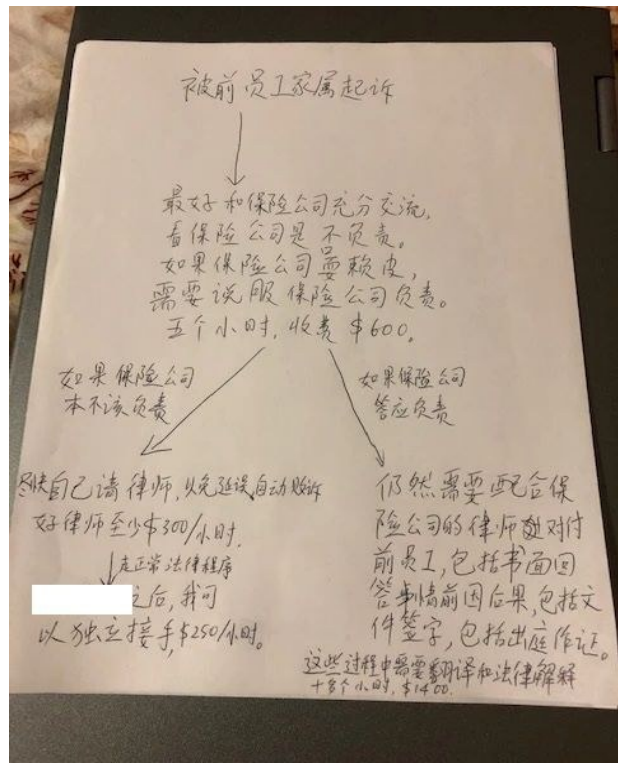 被前员工家属起诉
最好和保险公司充分交流,
看保险公司是不负责。
如果保险公司耍赖皮,
需要说服保险公司负责。
五个小时,收费$600.
如果保险公司
本不该负责
尽快自己请律师,以免延误自动败诉
好律师至少$300/小时.
走正常法律程序
之后,我可
以独立接手,$250/小时。
如果保险公司
答应负责
仍然需要配合保
险公司的律师对付
前员工,包括书面回
答事情前因后果,包括文
件签字,包括出庭作证。
这些过程中需要翻译和法律解释
十多个小时,$1400.